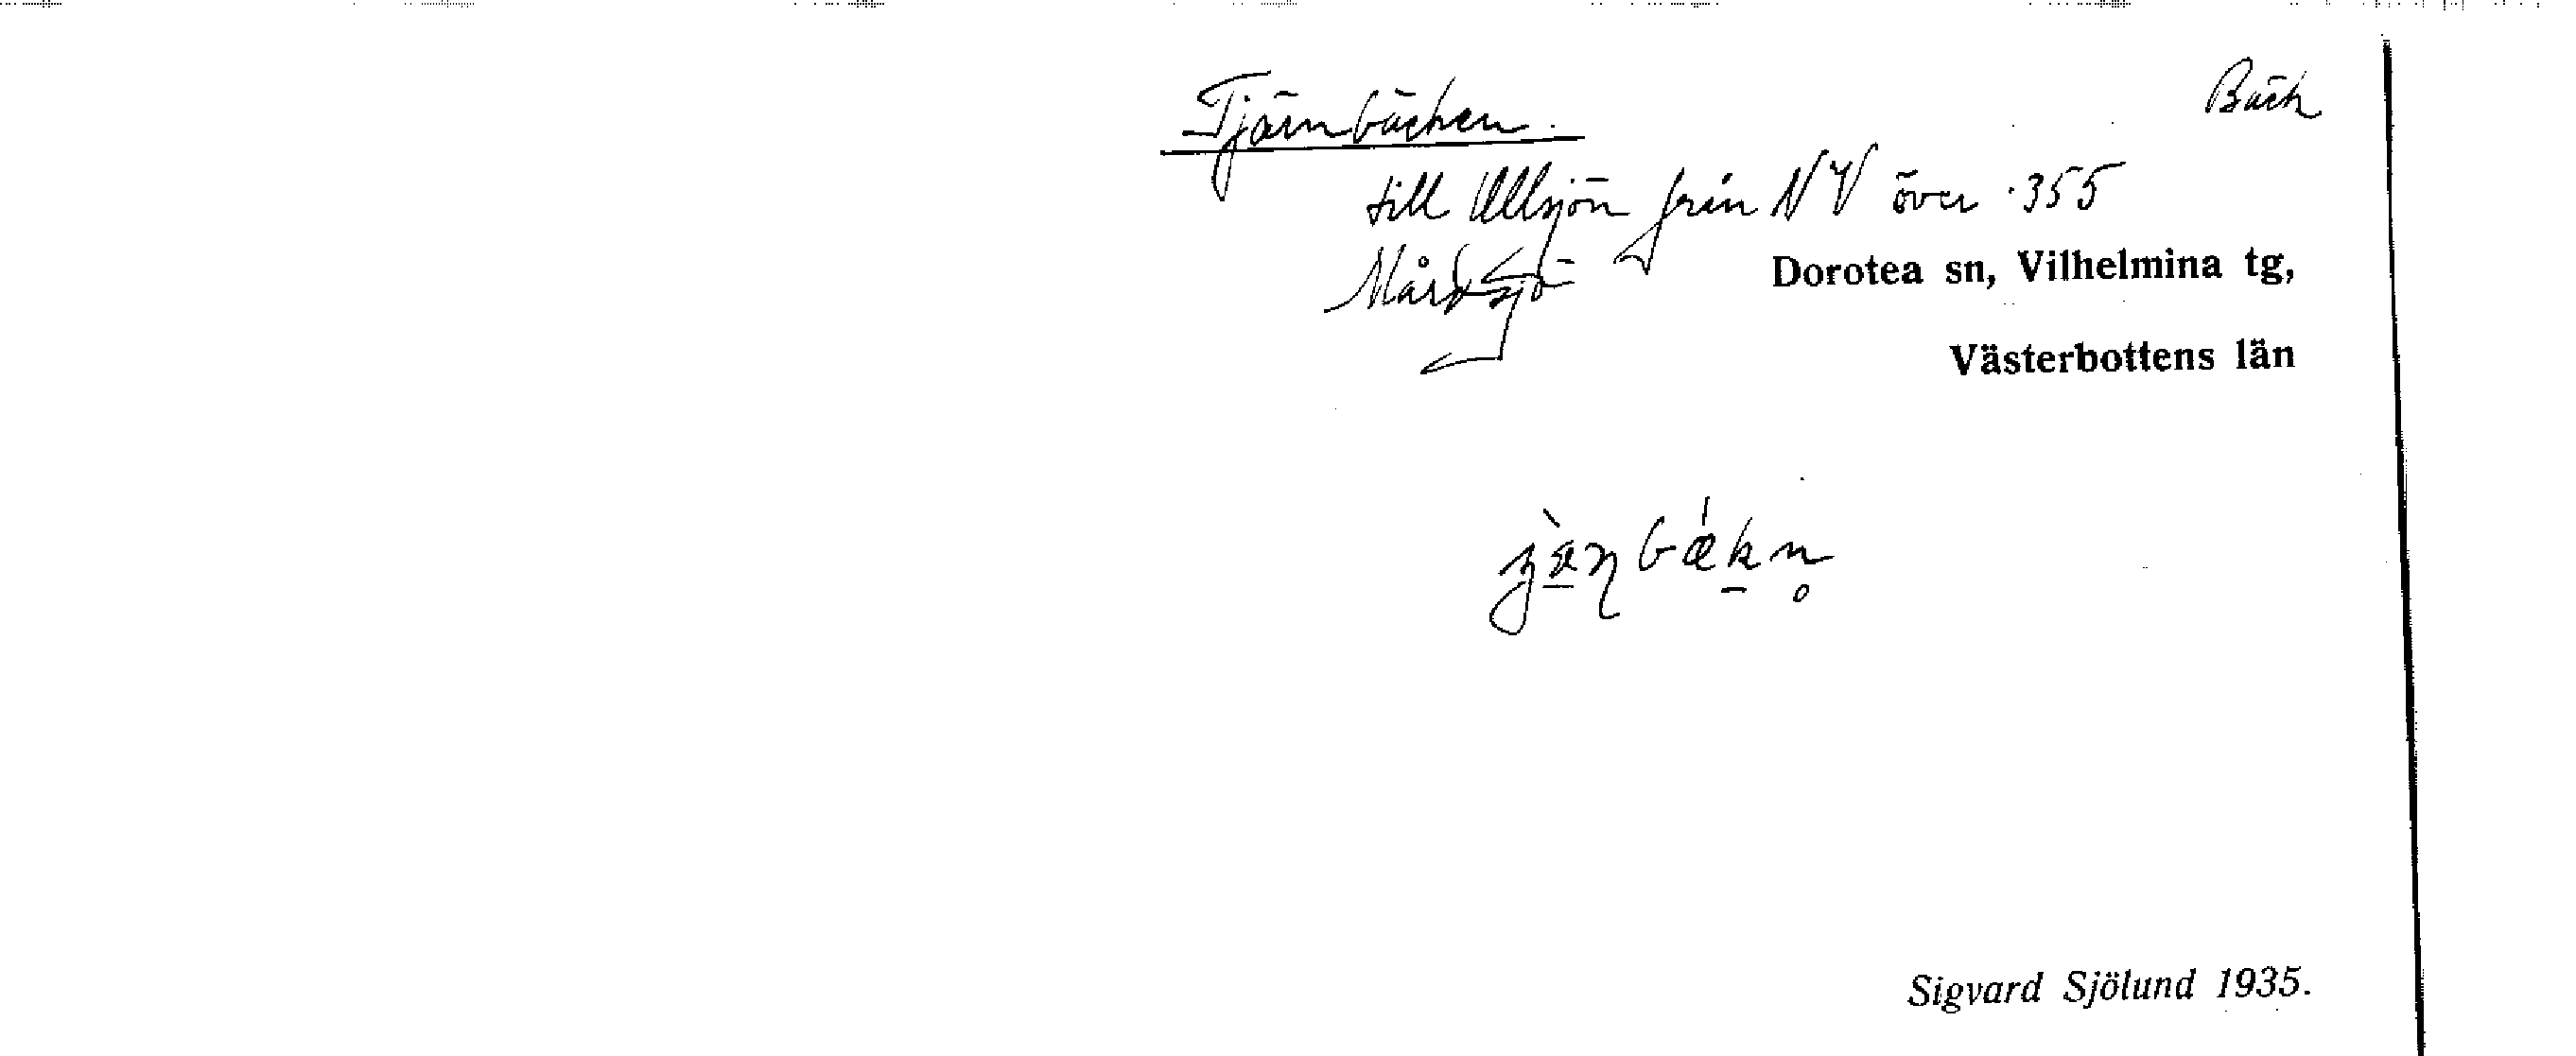 Tjärnbäcken. Bäck
till Ullsjön från NV över ·355
Mårdsjö Dorotea sn, Vilhelmina tg,
Västerbottens län
Sigvard Sjölund 1935.